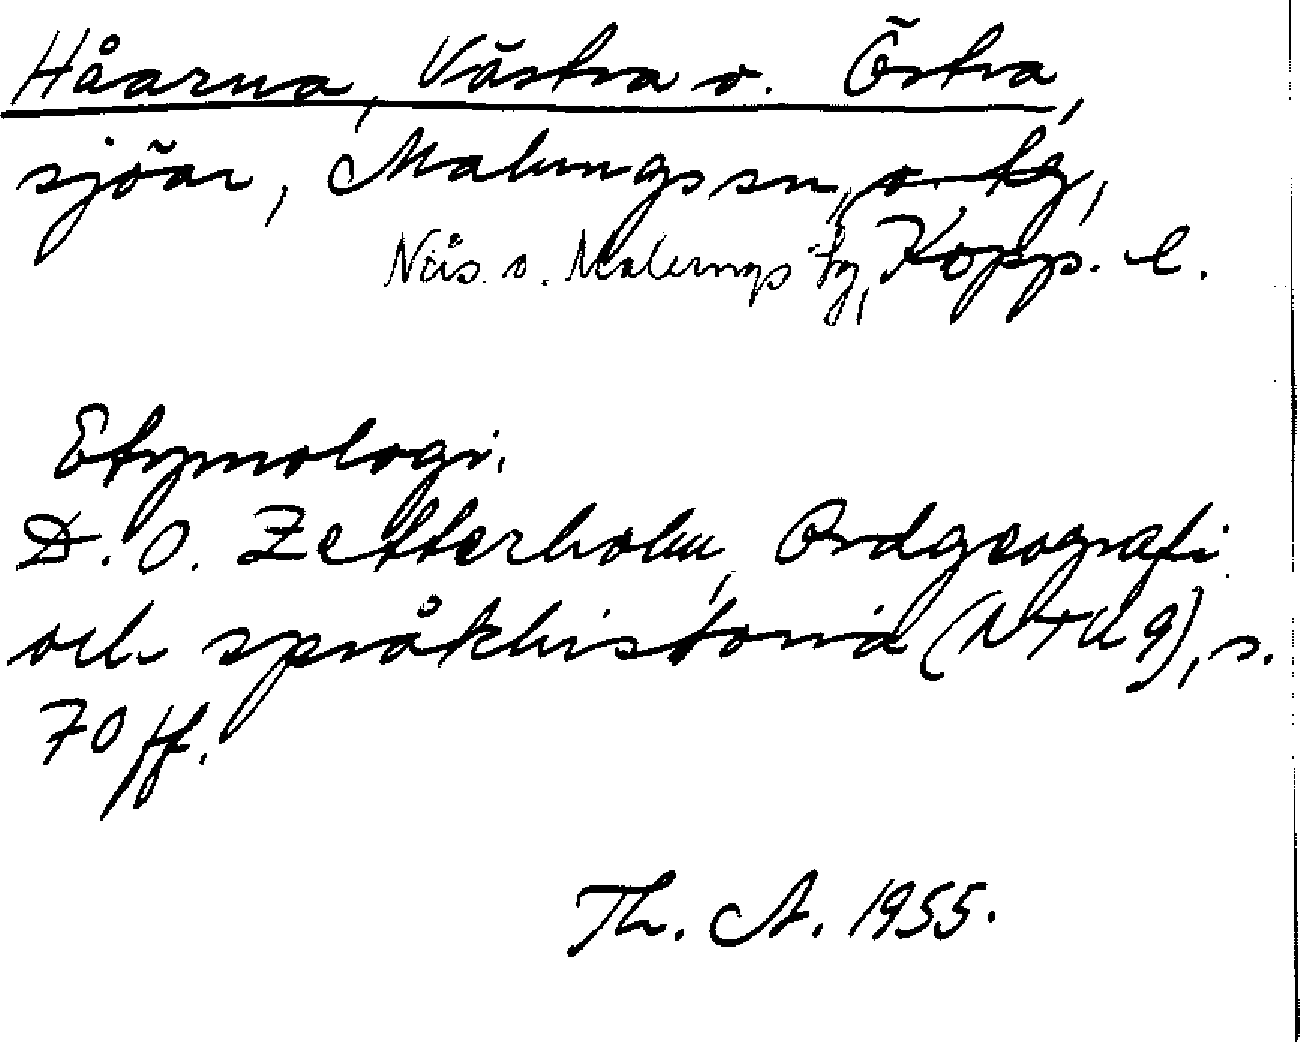 Håarna, Västra o. Östra,
sjöar, Malungs sn, o. tg,
Näs o. Malungs tg, Kopp. l.
Etymologi.
D. O. Zetterholm, Ordgeografi
och språkhistoria (NTU 9), s.
70 ff.
Th. A. 1955.